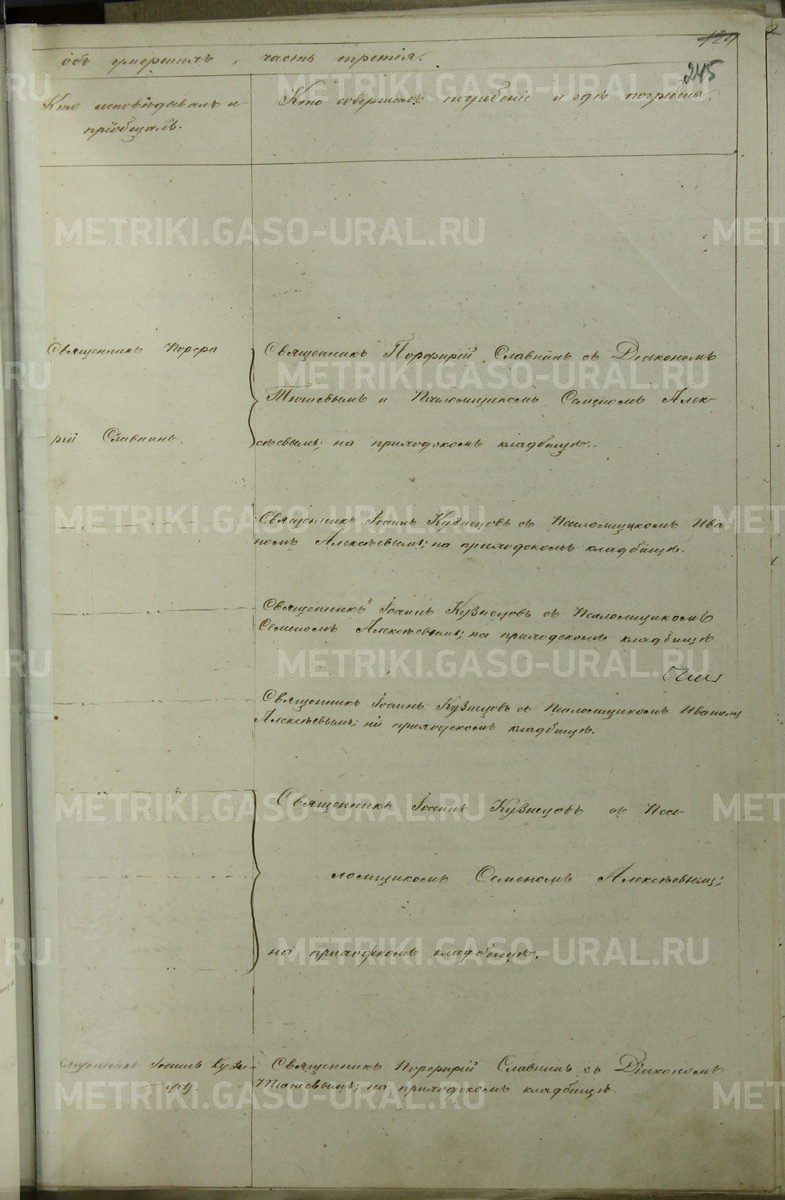 124
245
объ умершихъ, часть третія.
Кто исповѣдывалъ и
пріобщалъ.
Кто совершалъ погребеніе и гдѣ погребены.
METRIKI.GASO-URAL.RU
Священникъ Порфи
рій Славнинъ.
Священникъ Порфирій Славнинъ съ Діакономъ
и Псаломщикомъ Семеномъ Алек-
сѣевымъ; на приходскомъ кладбищѣ.
Священникъ Іоаннъ Кузнецовъ съ Псаломщикомъ Ива
номъ Алексѣевымъ; на приходскомъ кладбищѣ.
Священникъ Іоаннъ Кузнецовъ съ Псаломщикомъ
Семеномъ Алексѣевымъ; на приходскомъ кладбищѣ
Священникъ Іоаннъ Кузнецовъ съ Псаломщикомъ Иваномъ
Алексѣевымъ; на приходскомъ кладбищѣ.
Священникъ Іоаннъ Кузнецовъ съ Пса-
ломщикомъ Семеномъ Алексѣевымъ;
на приходскомъ кладбищѣ.
Іоаннъ Кузне-
Священникъ Порфирій Славнинъ съ Діакономъ
на приходскомъ кладбищѣ.